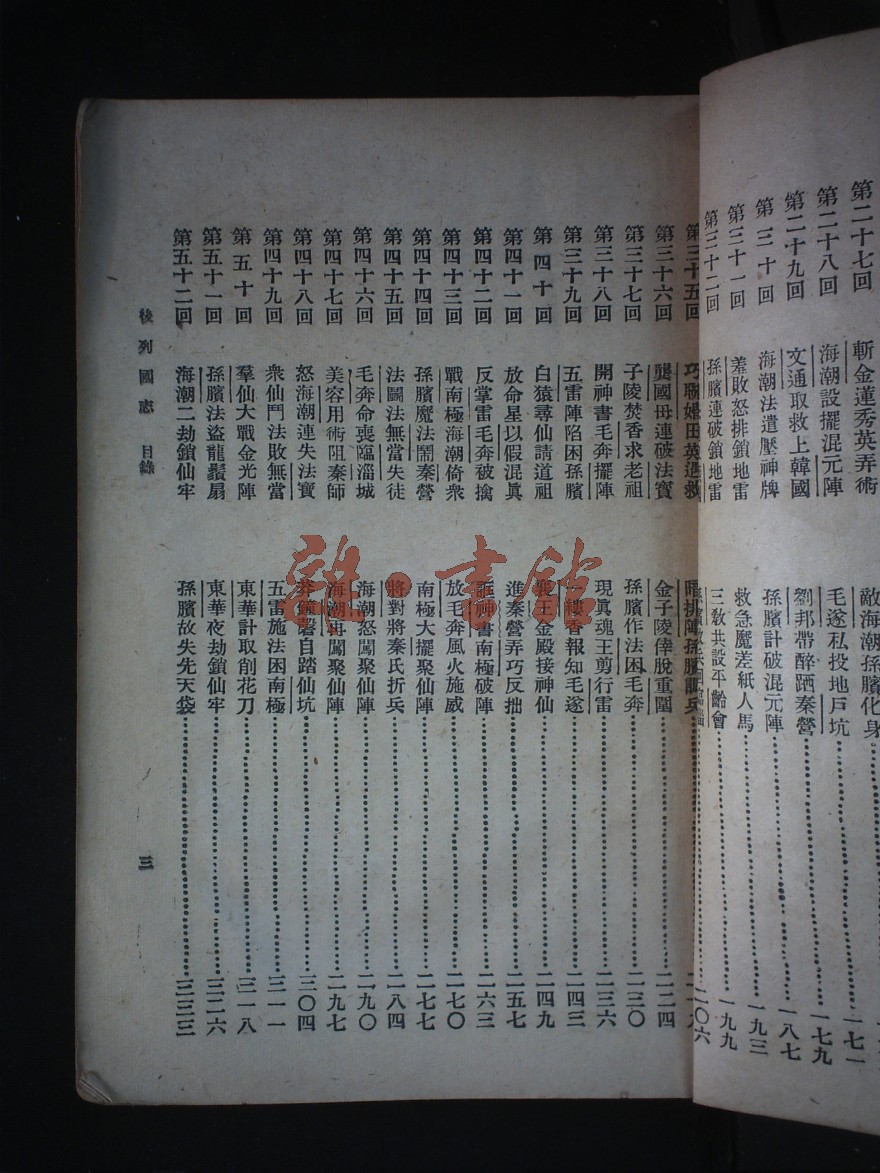 第二十七回 斬金蓮秀英弄術 敵海潮孫臏化身 一七一
第二十八回 海潮設擺混元陣 毛遂私投地戶坑 一七九
第二十九回 文通取救上韓國 劉邦帶醉跴秦營 一八七
第三十回 海潮法遣壓神牌 孫臏計破混元陣 一九三
第三十一回 羞敗怒排鎖地雷 救急魔差紙人馬 一九九
第三十二回 孫臏連破鎖地雷 三教共設平齡會 二〇六
第三十五回
第三十六回 龔國母連破法寶 金子陵倖脫重圍 二二四
第三十七回 子陵焚香求老祖 孫臏作法困毛奔 二三〇
第三十八回 開神書毛奔擺陣 現真魂王剪行雷 二三六
第三十九回 五雷陣陷困孫臏 一縷香報知毛遂 二四三
第四十回 白猿尋仙請道祖 襄王金殿接神仙 二四九
第四十一回 放命星以假混眞 進秦營弄巧反拙 二五七
第四十二回 反掌雷毛奔破擒 誑神書南極破陣 二六三
第四十三回 戰南極海潮倚衆 放毛奔風火施威 二七〇
第四十四回 孫臏魔法鬧秦營 南極大擺聚仙陣 二七七
第四十五回 法圖法無當失徒 將對將秦氏折兵 二八四
第四十六回 毛奔命喪臨淄城 海潮怒闖聚仙陣 二九〇
第四十七回 美容用術阻秦師 海潮再闖聚仙陣 二九七
第四十八回 怒海潮連失法寶 莽鐘馨自踏仙坑 三〇四
第四十九回 衆仙鬥法敗無當 五雷施法困南極 三一一
第五十回 羣仙大戰金光陣 東華計取削花刀 三一八
第五十一回 孫臏法盜龍鬚扇 東華夜劫鎖仙牢 三二六
第五十二回 海潮二劫鎖仙牢 孫臏故失先天袋 三三三
後列國志 目錄 三
雜·書館